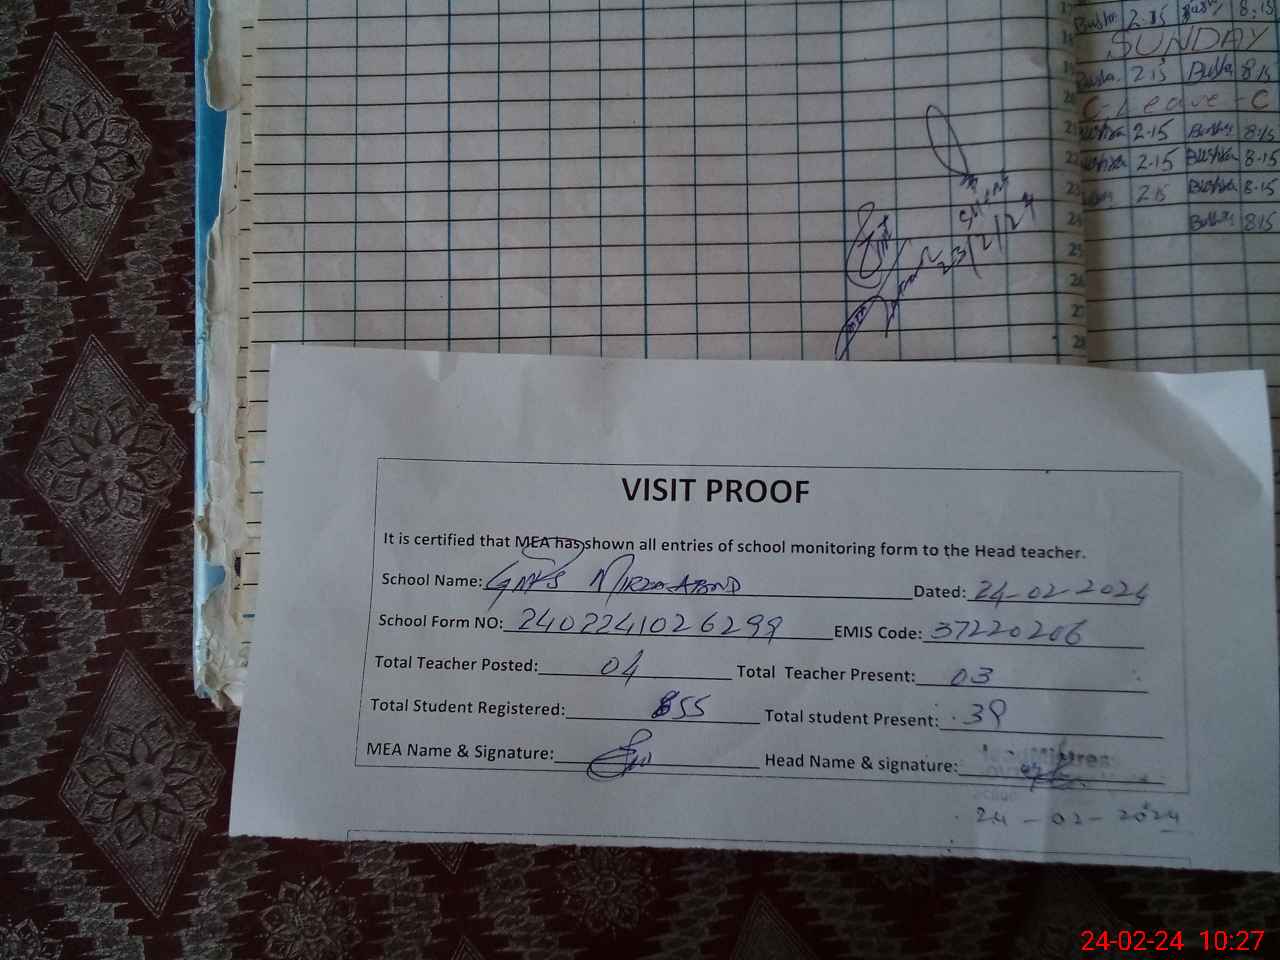 17 Bushra 2.15 Bushra 8.15
18 SUNDAY
19 Bushra 2.15 Bushra 8.15
20 C. Leave - C
21 Bushra 2.15 Bushra 8.15
22 Bushra 2.15 Bushra 8.15
23 2.15 Bushra 8.15
24 Bushra 8.15
25
26
27
28
23/2/24
VISIT PROOF
It is certified that MEA has shown all entries of school monitoring form to the Head teacher.
School Name: GMPS Dated: 24-02-2024
School Form NO: 2402241026299 EMIS Code: 37220206
Total Teacher Posted: 04 Total Teacher Present: 03
Total Student Registered: 55 Total student Present: 39
MEA Name & Signature: Head Name & signature:
24-02-2024
24-02-24 10:27